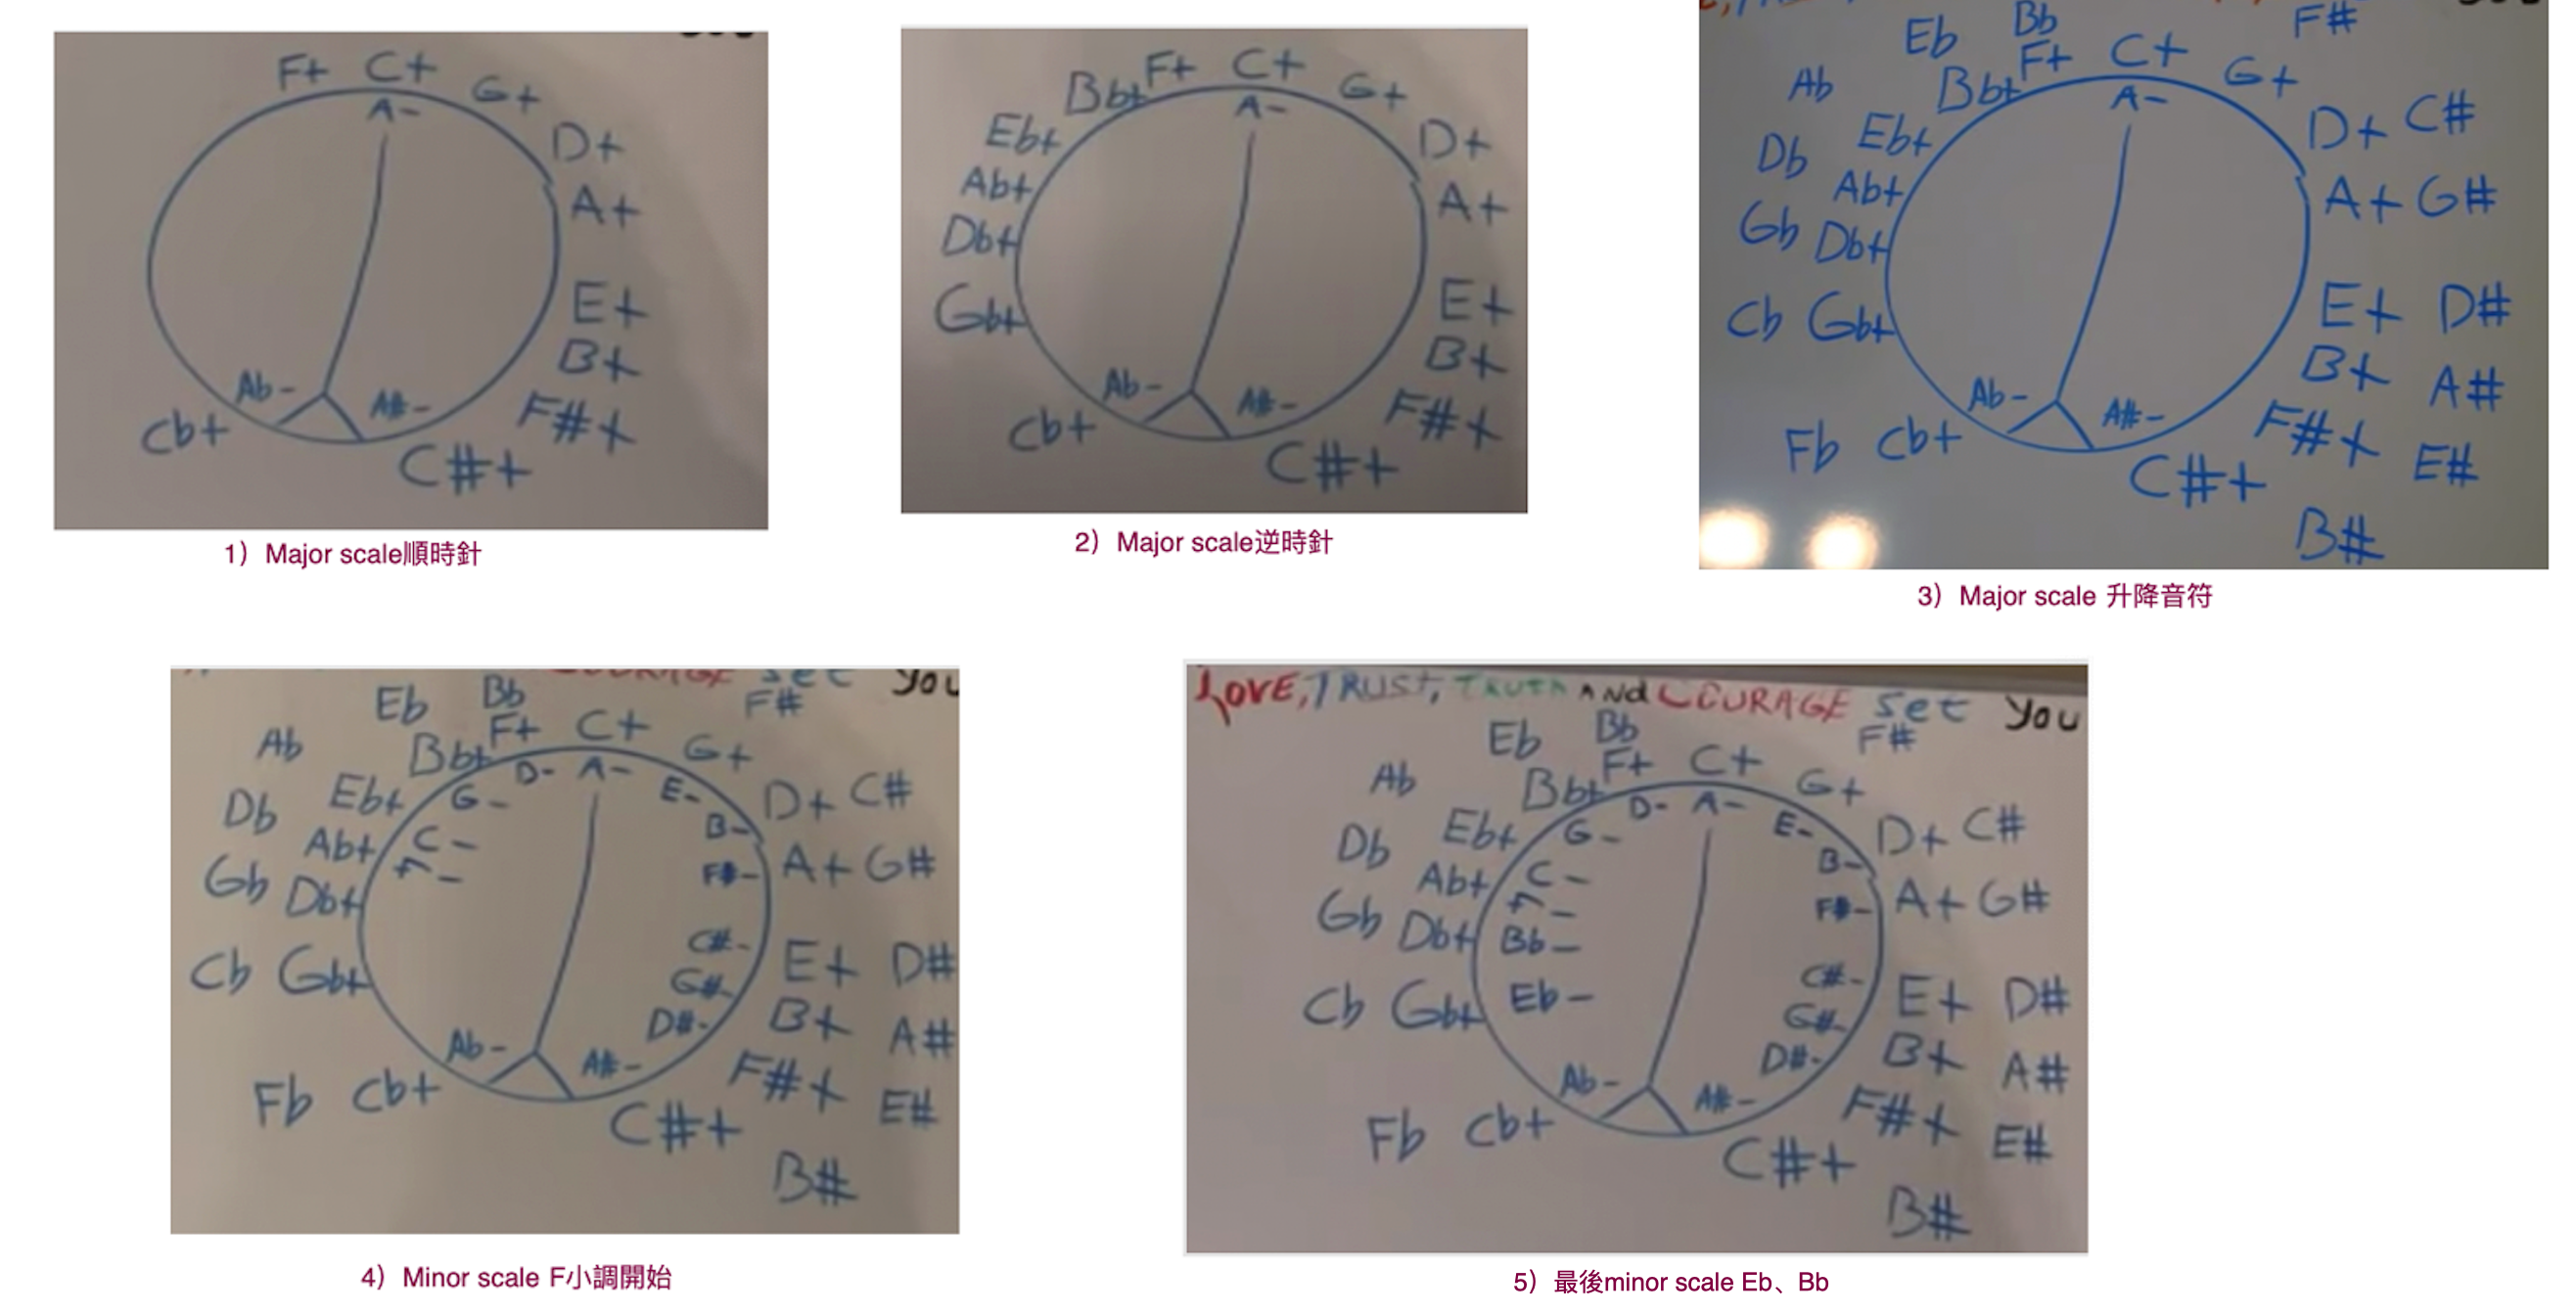 F+ C+ G+
A-
D+
A+
E+
B+
Ab- A#- F#+
Cb+ C#+
1）Major scale順時針
Bb+ F+ C+ G+
A-
Eb+ D+
Ab+ A+
Db+
Gb+ E+
B+
Ab- A#- F#+
Cb+ C#+
2）Major scale逆時針
Eb Bb F#
Ab Bb+ F+ C+ G+
A-
Db Eb+ D+ C#
Ab+ A+ G#
Gb Db+
Cb Gb+ E+ D#
B+ A#
Ab- A#- F#+
Fb Cb+ C#+ E#
B#
3）Major scale 升降音符
COURAGE set you
Eb Bb F#
Ab Bb+ F+ C+ G+
G- D- A- E-
Db Eb+ D+ C#
C- B-
Ab+ A+ G#
F- F#-
Gb Db+
C#-
Cb Gb+ E+ D#
G#-
D#- B+ A#
Ab- A#- F#+
Fb Cb+ C#+ E#
B#
4）Minor scale F小調開始
LOVE, TRUST, TRUTH ANd COURAGE set you
Eb Bb F#
Ab Bb+ F+ C+ G+
G- D- A- E-
Db Eb+ D+ C#
C- B-
Ab+ A+ G#
F- F#-
Gb Db+ Bb-
C#-
Cb Gb+ Eb- E+ D#
G#-
D#- B+ A#
Ab- A#- F#+
Fb Cb+ C#+ E#
B#
5）最後minor scale Eb、Bb